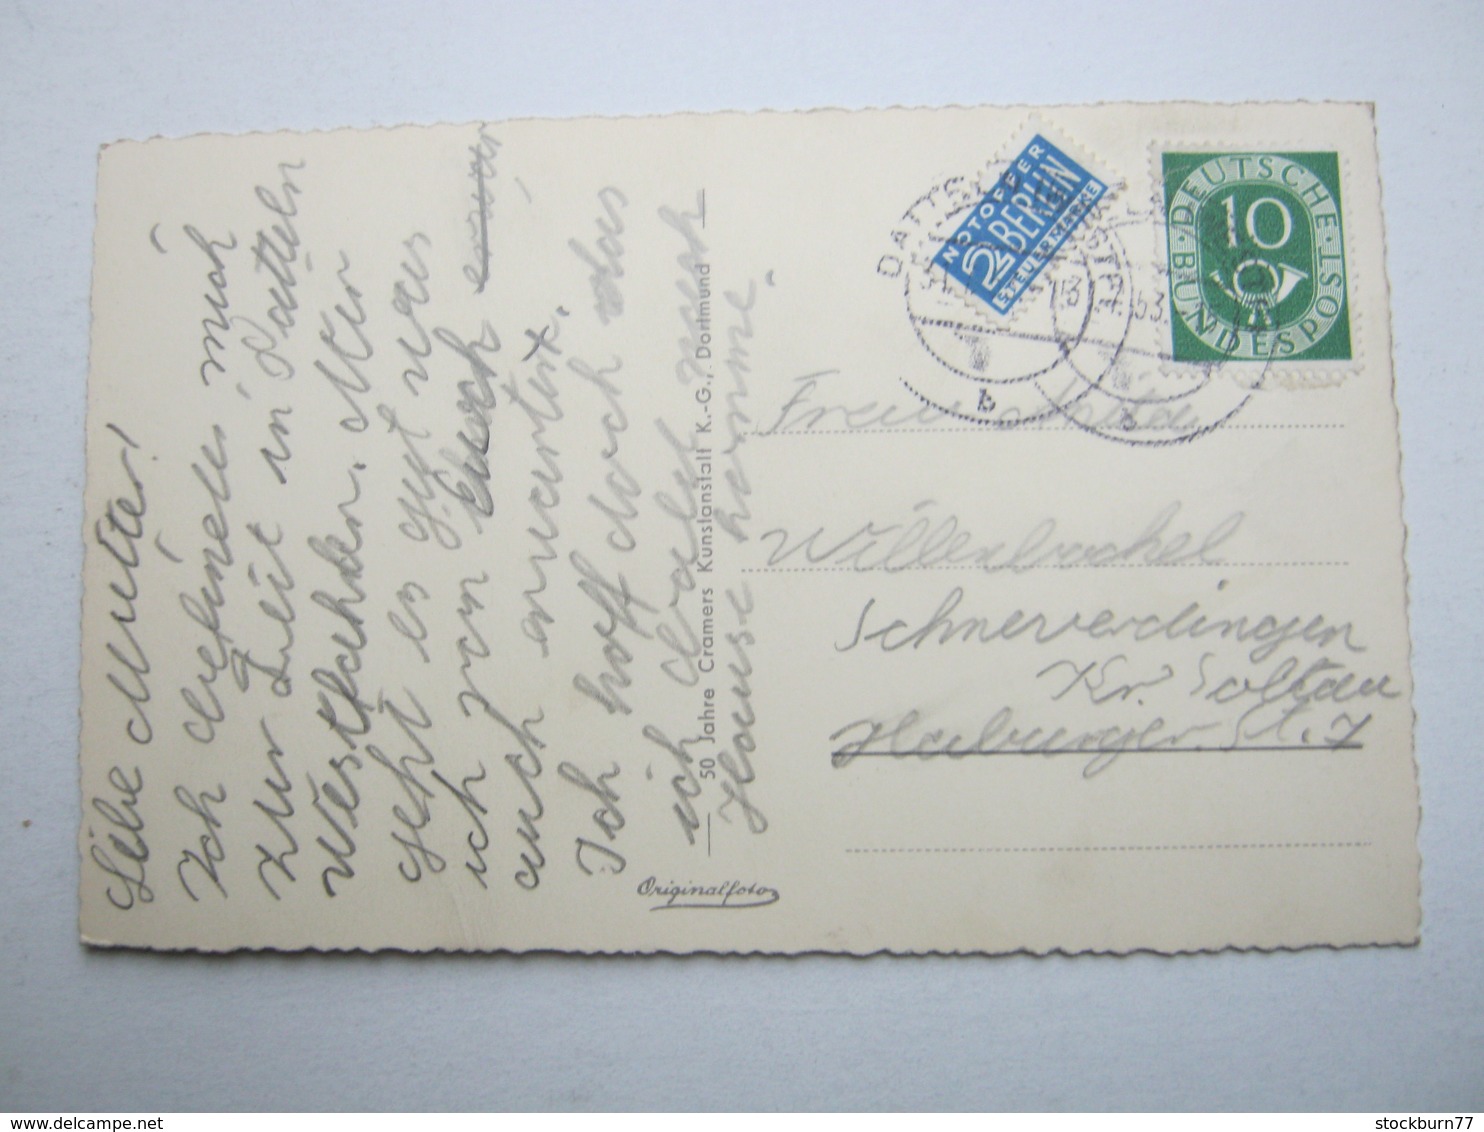 Liebe Mutter!
Ich befinde mich
zur Zeit in Datteln
Westfahlen. Mir
geht es gut was
ich von Euch
auch erwarte.
Ich hoff doch das
ich bald nach
Hause komme.
50 Jahre Cramers Kunstanstalt K.-G., Dortmund
Originalfoto
NOTOPFER
2 BERLIN
STEUERMARKE
DEUTSCHE
10
BUNDESPOST
DATT
53
b
Frau
Willenbockel
Schneverdingen
Kr. Soltau
Haburger St. 7
delcampe.net
stockburn77